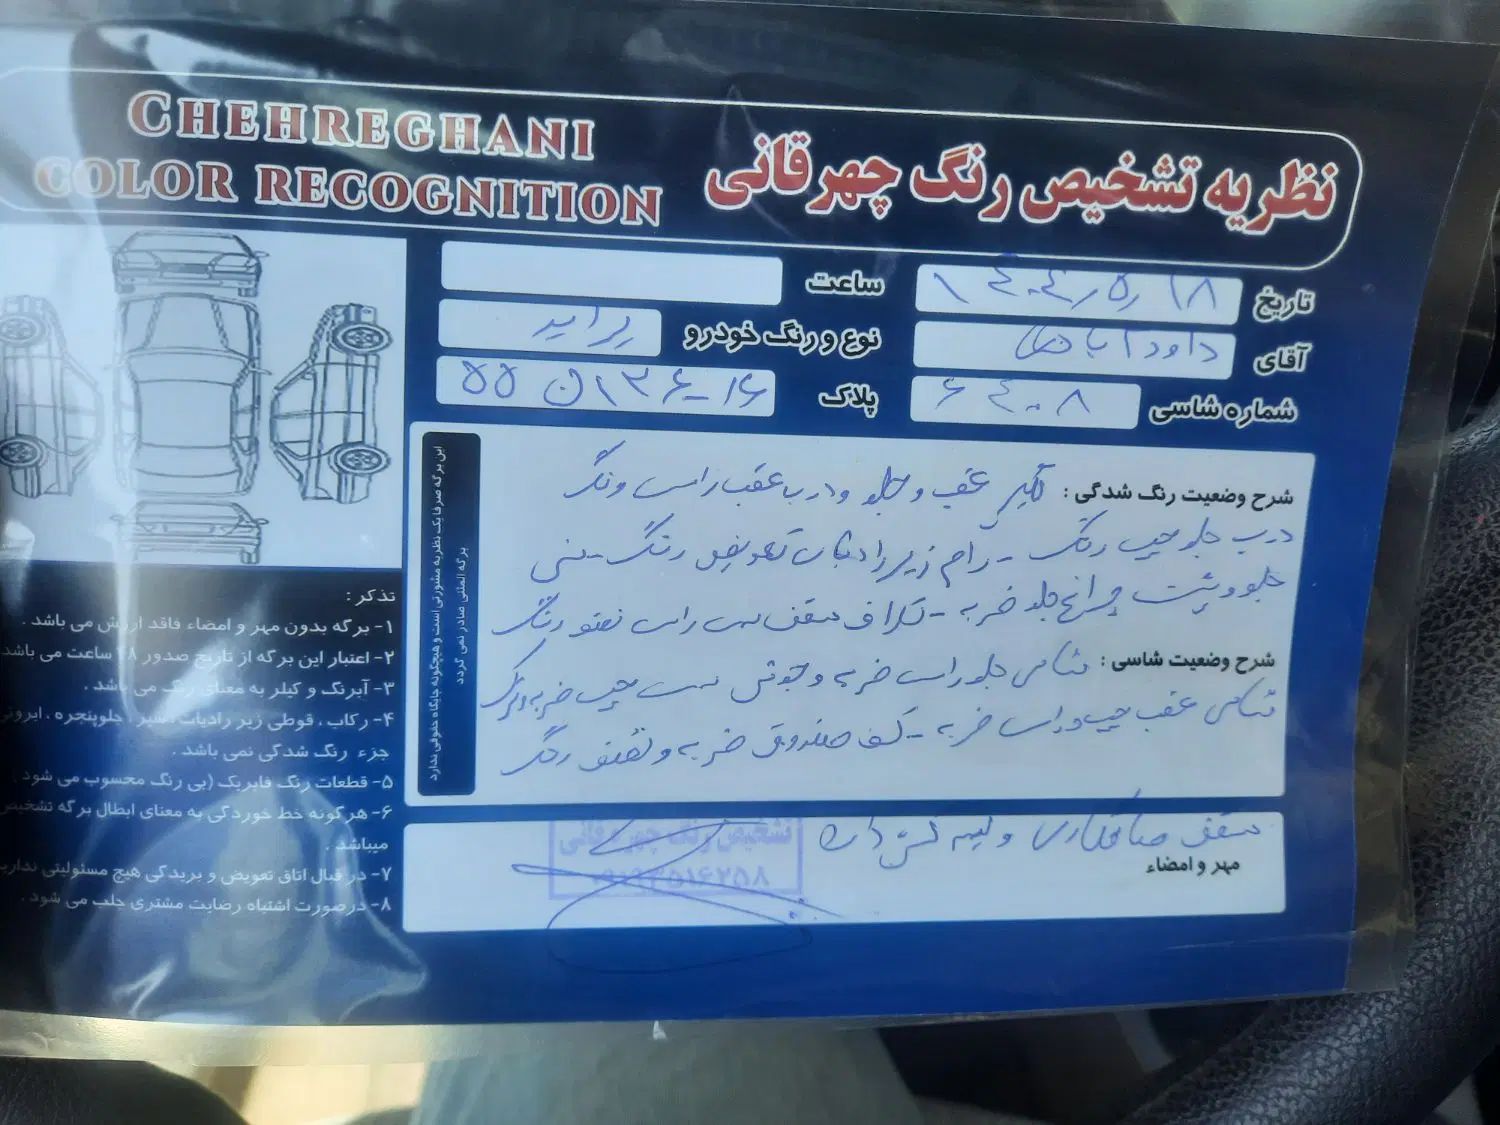 CHEHREGHANI
COLOR RECOGNITION
نظریه تشخیص رنگ چهرقانی
تاریخ ۱۴۰۴/۵/۱۸
ساعت
آقای داود
نوع و رنگ خودرو پراید
شماره شاسی ۶۴۰۸
پلاک
شرح وضعیت رنگ شدگی : گلگیر عقب و جلو و درب عقب راست رنگ
درب جلو چپ رنگ - رام زیر رادیات تعویض رنگ - سینی
جلو و پشت چراغ جلو ضربه - سقف راست رنگ
شرح وضعیت شاسی : شاسی جلو راست ضربه و جوش چپ ضربه
شاسی عقب چپ و راست ضربه - کف صندوق ضربه و رنگ
سقف صافکاری
مهر و امضاء
تشخیص رنگ چهرقانی
این برگه صرفا یک نظریه مشورتی است و هیچگونه جایگاه حقوقی ندارد
برگه المثنی صادر نمی گردد
تذکر :
۱- برگه بدون مهر و امضاء فاقد ارزش می باشد .
۲- اعتبار این برگه از تاریخ صدور ۴۸ ساعت می باشد
۳- آبرنگ و کیلر به معنای رنگ می باشد .
۴- رکاب ، قوطی زیر رادیات ، سپر ، جلوپنجره ،
جزء رنگ شدگی نمی باشد .
۵- قطعات رنگ فابریک (بی رنگ محسوب می شود )
۶- هرگونه خط خوردگی به معنای ابطال برگه تشخیص
میباشد .
۷- در قبال اتاق تعویض و بریدگی هیچ مسئولیتی نداریم
۸- درصورت اشتباه رضایت مشتری جلب می شود .